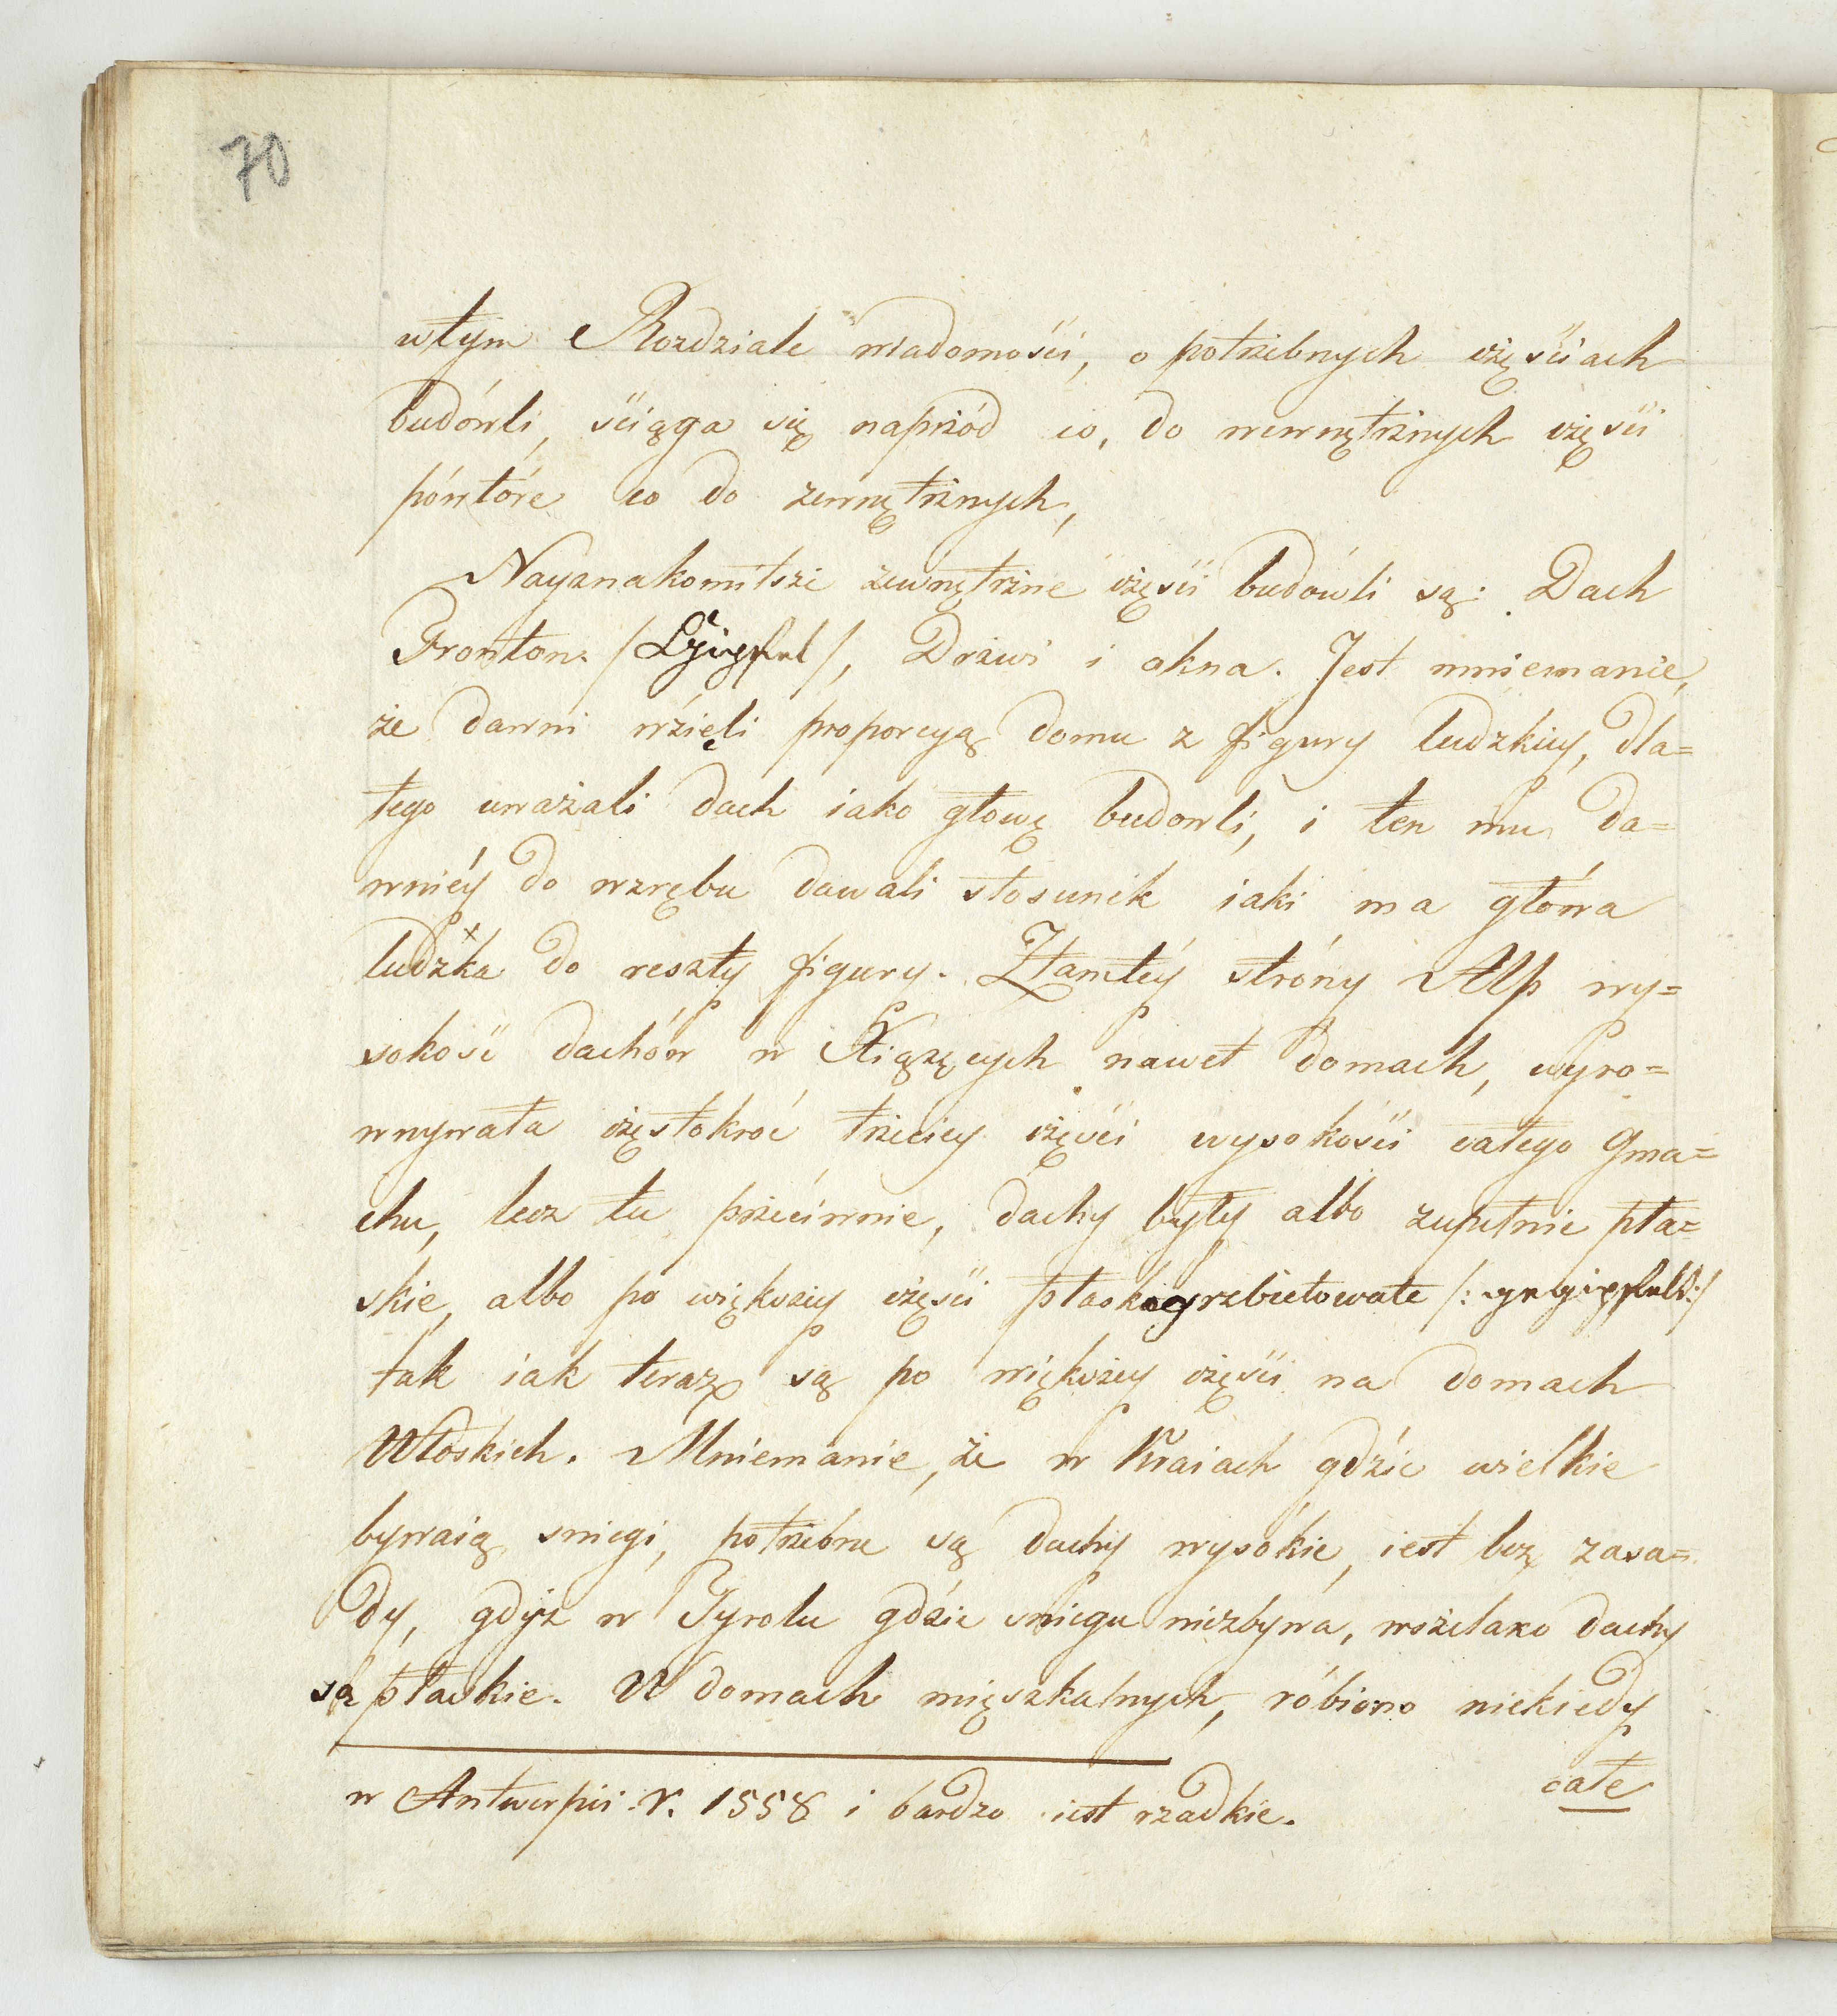 70
wtym Rozdziale wiadomości, o potrzebnych częściach
budówli, ściąga się naprzód co, do wewnętrznych części
pówtóre co do zewnętrznych,
Nayznakomitsze zewnętrzne części budówli są: Dach
Fronton. / Gipfel /, Drzwi i okna. Jest mniemanie,
że dawni wzięli proporcyą domu z figury ludzkiey, dla=
tego uważali dach iako głowę budowli, i ten mu da=
wniéy do wzrębu dawali stosunek iaki ma głowa
ludzka do reszty figury. Ztamtéy stróny Alp wy=
sokość dachów w Xiążęcych nawet domach, wyro=
wnywała częstokroć trzeciey części wysokości całego Gma=
chu, lecz tu przeciwnie, dachy były albo zupełnie pła=
skie, albo po większey części płaskogrzbietowate /: gegipfelt:/
tak iak teraz są po większey części na domach
Włoskich. Mniemanie, że w Kraiach gdzie wielkie
bywaią sniegi, potrzebne są dachy wysókie, iest bez zasa=
dy, gdyż w Tyrolu gdzie sniegu niezbywa, wszelako dachy
są płaskie. W domach mięszkalnych, róbiono niekiedy
całe
w Antwerpii r. 1558 i bardzo iest rzadkie.